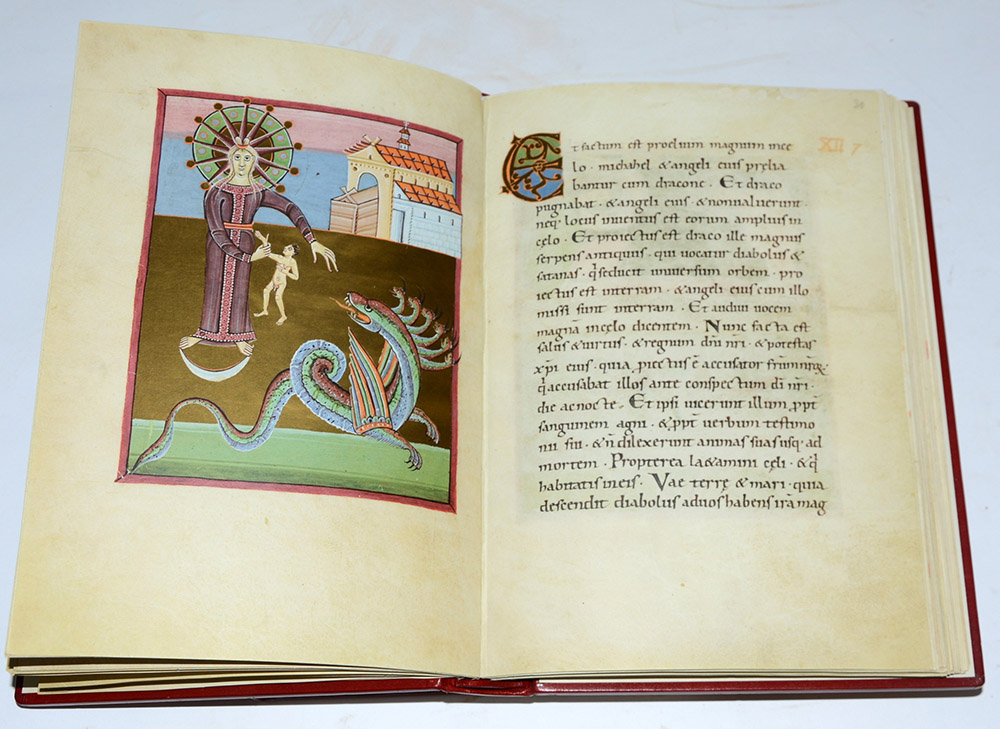 30
XII 7
Et factum est proelium magnum in ce
lo · michahel & angeli eius prȩlia
bantur cum dracone · Et draco
pugnabat · & angeli eius · & non valuerunt ·
neq; locus inventus est eorum amplius in
cȩlo · Et proiectus est draco ille magnus
serpens antiquus · qui vocatur diabolus &
satanas · q̄ seducit universum orbem · pro
iectus est in terram · & angeli eius cum illo
missi sunt in terram · Et audivi vocem
magnā in cȩlo dicentem · Nunc facta est
salus & virtus · & regnum dn̄i nr̄i · & potestas
xp̄i eius · quia p̱iectus ē accusator fr̄m nr̄ȩ ·
q̄ accusabat illos ante conspectum dī nr̄i ·
die ac nocte · Et ipsi vicerunt illum ꝓpt̄
sanguinem agni · & ꝓpt̄ verbum testimo
nii sui · & n̄ dilexerunt animas suas usq; ad
mortem · Propterea lȩtamini cȩli · & q̄
habitatis in eis · Vae terrȩ & mari · quia
descendit diabolus ad vos habens irā mag